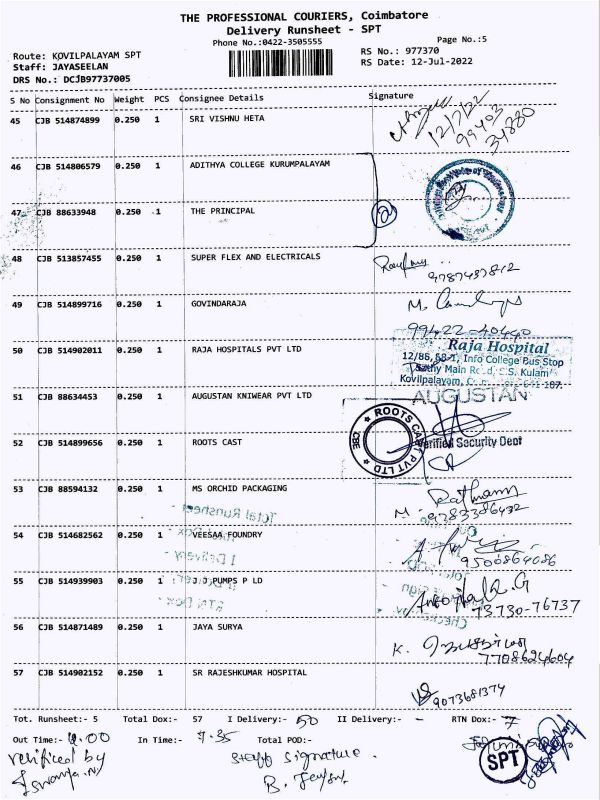 THE PROFESSIONAL COURIERS, Coimbatore
Delivery Runsheet - SPT
Phone No.:0422-3505555
Page No.:5
Route: KOVILPALAYAM SPT
RS No.: 977370
Staff: JAYASEELAN
RS Date: 12-Jul-2022
DRS No.: DCJB97737005
S No Consignment No Weight PCS Consignee Details Signature
45 CJB 514874899 0.250 1 SRI VISHNU HETA
12/7/22
99403
34880
46 CJB 514806579 0.250 1 ADITHYA COLLEGE KURUMPALAYAM
47 CJB 88633948 0.250 1 THE PRINCIPAL
2
48 CJB 513857455 0.250 1 SUPER FLEX AND ELECTRICALS
9787437812
49 CJB 514899716 0.250 1 GOVINDARAJA
99422-40440
50 CJB 514902011 0.250 1 RAJA HOSPITALS PVT LTD
Raja Hospital
12/86, 68-1, Info College Bus Stop
Sathy Main Road, S.S. Kulam
Kovilpalayam,
51 CJB 88634453 0.250 1 AUGUSTAN KNIWEAR PVT LTD
AUGUSTAN
52 CJB 514899656 0.250 1 ROOTS CAST
ROOTS CAST PVT LTD
CBE
Verified Security Dept
53 CJB 88594132 0.250 1 MS ORCHID PACKAGING
9783386432
54 CJB 514682562 0.250 1 VEESAA FOUNDRY
9500864086
55 CJB 514939903 0.250 1 J J PUMPS P LD
73730-76737
56 CJB 514871489 0.250 1 JAYA SURYA
K.
7708624604
57 CJB 514902152 0.250 1 SR RAJESHKUMAR HOSPITAL
9073681374
Tot. Runsheet:- 5 Total Dox:- 57 I Delivery:- 50 II Delivery:- - RTN Dox:- 7
Out Time:- 9.00 In Time:- 7.35 Total POD:-
verified by
staff signature.
SPT